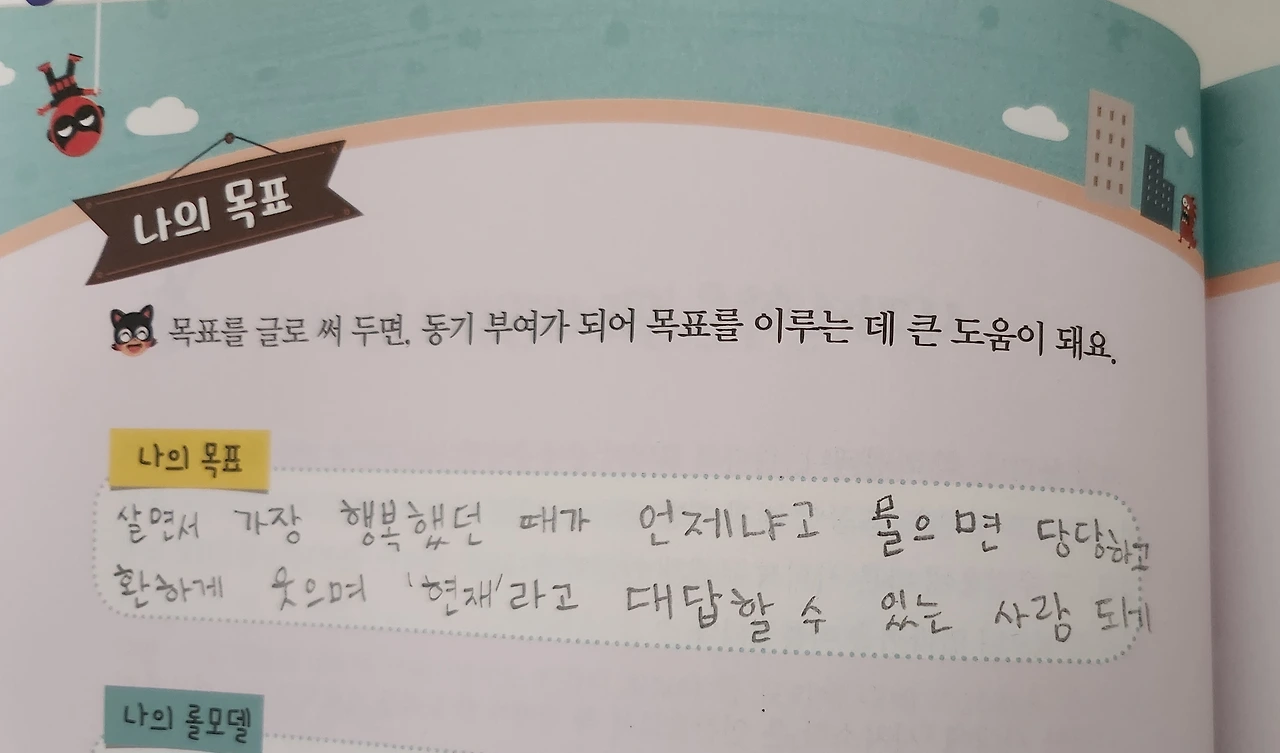 나의 목표
목표를 글로 써 두면, 동기 부여가 되어 목표를 이루는 데 큰 도움이 돼요.
나의 목표
살면서 가장 행복했던 때가 언제냐고 물으면 당당하고
환하게 웃으며 '현재'라고 대답할 수 있는 사람 되기
나의 롤모델